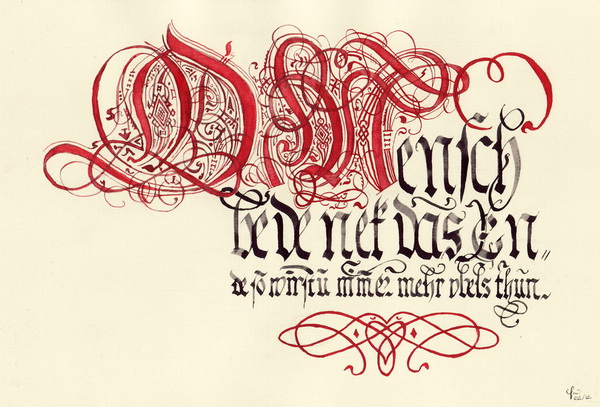 O Mensch
bedenck das En〃
de so wirstu nim̃er mehr vbels thun.